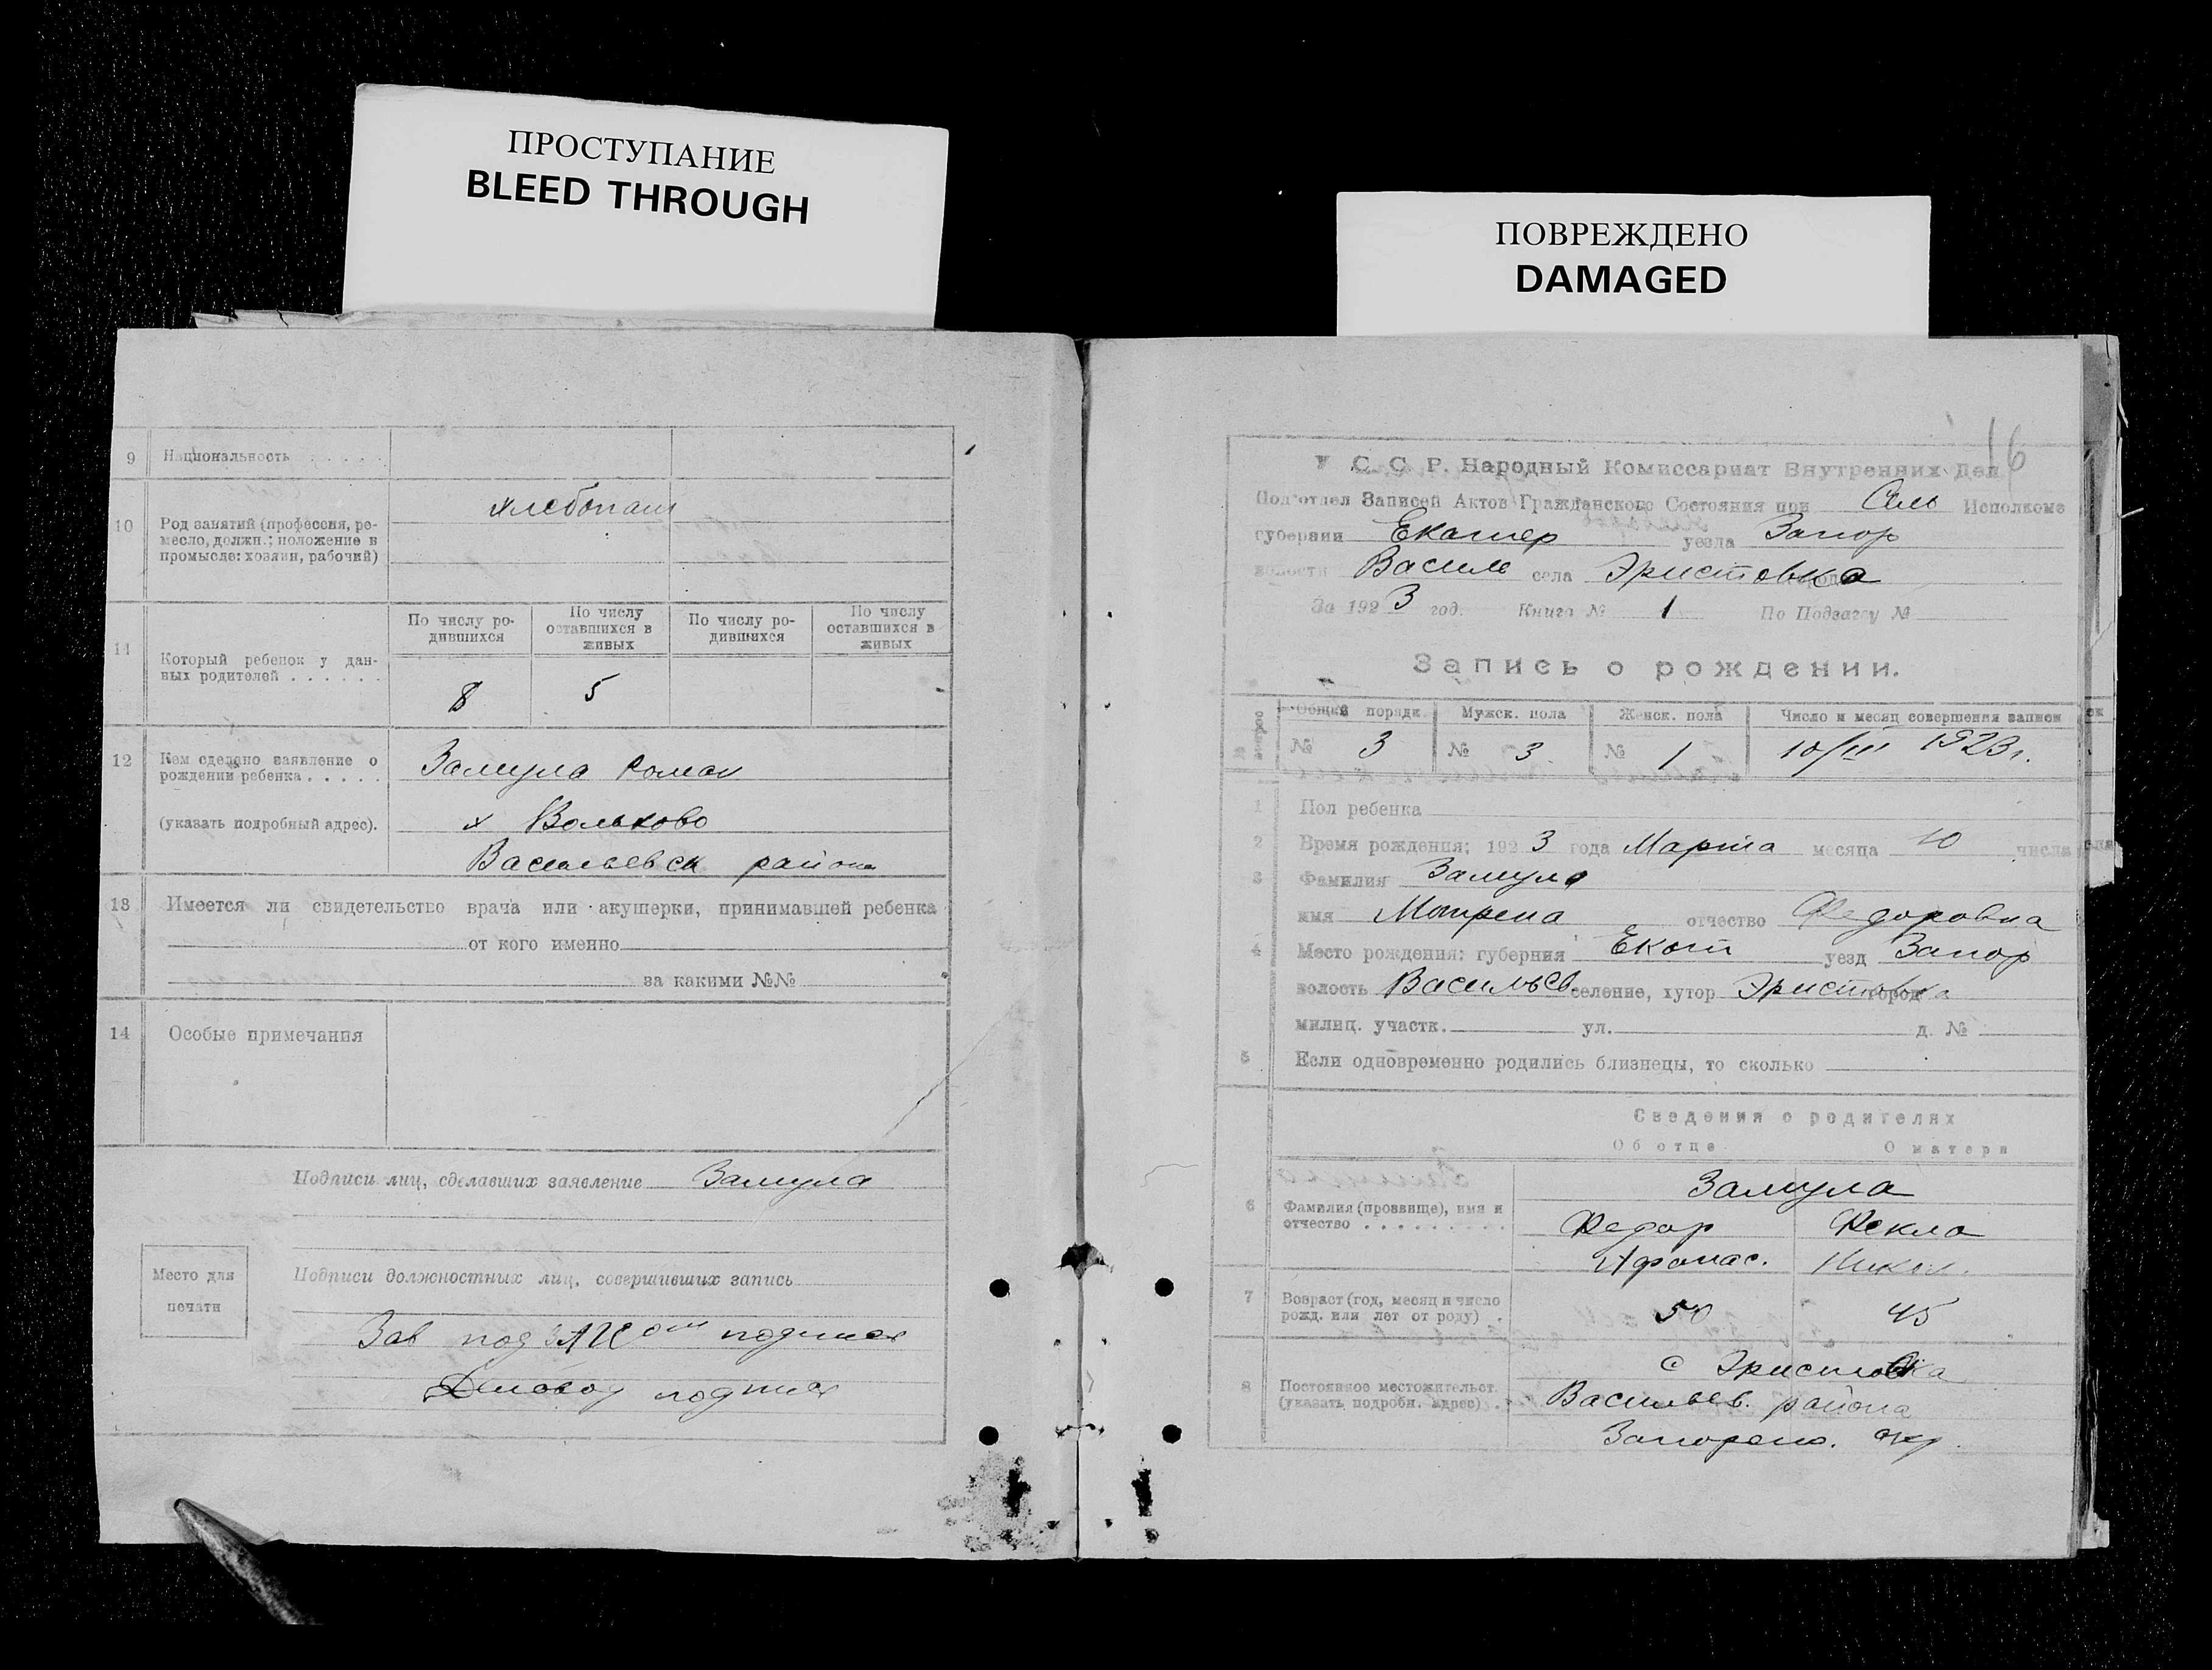 ПРОСТУПАНИЕ
BLEED THROUGH
ПОВРЕЖДЕНО
DAMAGED
9 Национальность . . . . .
10 Род занятий (професеия, ре-
месло, должн.; положение в
промысле: хозяин, рабочий)
хлебопаш
11 Который ребенок у дан-
ных родителей . . . . . .
По числу ро-
дившихся
По числу
оставшихся в
живых
По числу ро-
дившихся
По числу
оставшихся в
живых
8 5
12 Кем сделано заявление о
рождении ребенка . . . . .
(указать подробный адрес).
Замула Роман
х Вольково
Васильевск района
13 Имеется ли свидетельство врача или акушерки, принимавшей ребенка
от кого именно
за какими №№
14 Особые примечания
Подписи лиц, сделавших заявление Замула
Место для
печати
Подписи должностных лиц, совершивших запись
Зав под подписи
Деловод подпись
16
У С. С. Р. Народный Комиссариат Внутренних Дел
Подотдел Записей Актов Гражданского Состояния при Сель Исполкоме
губернии Екатер уезда Запор
волости Василь села Эристовка
За 1923 год. Книга № 1 По Подзагсу №
Запись о рождении.
Общий порядк. Мужск. пола Женск. пола Число и месяц совершения записи
№ 3 № 3 № 1 10/III 1923г.
1 Пол ребенка
2 Время рождения; 1923 года Марта месяца 10 числа
3 Фамилия Замула
имя Мотрена отчество Федоровна
4 Место рождения: губерния Екат уезд Запор
волость Васильев селение, хутор Эристовка город
милиц. участк. ул. д. №
5 Если одновременно родились близнецы, то сколько
Сведения о родителях
Об отце О матери
6 Фамилия (прозвище), имя и
отчество . . . . . . . . .
Замула
Федор Фекла
Афанас. Никол.
7 Возраст (год, месяц и число
рожд. или лет от роду) .
50 45
8 Постоянное местожительст.
(указать подробн. адрес) .
с Эристовка
Васильев. района
Запорож. окр.